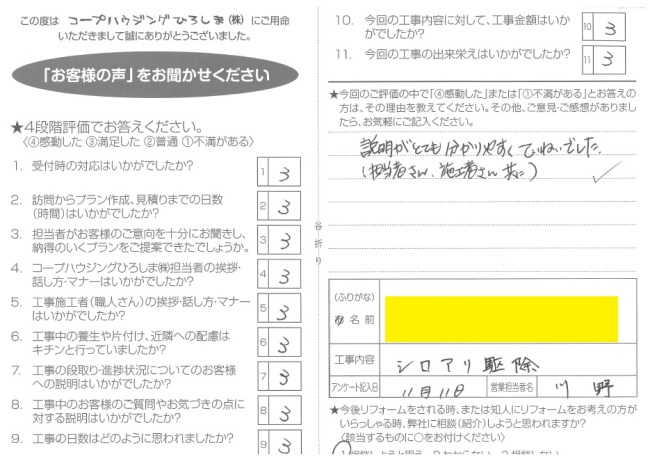 この度は コープハウジングひろしま(株) にご用命
いただきまして誠にありがとうございました。
「お客様の声」をお聞かせください
★4段階評価でお答えください。
〈④感動した ③満足した ②普通 ①不満がある〉
1. 受付時の対応はいかがでしたか? 1 3
2. 訪問からプラン作成、見積りまでの日数
(時間)はいかがでしたか? 2 3
3. 担当者がお客様のご意向を十分にお聞きし、
納得のいくプランをご提案できたでしょうか。 3 3
4. コープハウジングひろしま㈱担当者の挨拶・
話し方・マナーはいかがでしたか? 4 3
5. 工事施工者(職人さん)の挨拶・話し方・マナー
はいかがでしたか? 5 3
6. 工事中の養生や片付け、近隣への配慮は
キチンと行っていましたか? 6 3
7. 工事の段取り・進捗状況についてのお客様
への説明はいかがでしたか? 7 3
8. 工事中のお客様のご質問やお気づきの点に
対する説明はいかがでしたか? 8 3
9. 工事の日数はどのように思われましたか? 9 3
谷折り
10. 今回の工事内容に対して、工事金額はいか
がでしたか? 10 3
11. 今回の工事の出来栄えはいかがでしたか? 11 3
★今回のご評価の中で「④感動した」または「①不満がある」とお答えの
方は、その理由を教えてください。その他、ご意見・ご感想がありまし
たら、お気軽にご記入ください。
説明がとても分かりやすくていねいでした。
(担当者さん、施工者さん共に)
(ふりがな)
お名前
工事内容 シロアリ駆除
アンケート記入日 11月11日 営業担当者名 川野
★今後リフォームをされる時、または知人にリフォームをお考えの方が
いらっしゃる時、弊社に相談(紹介)しようと思われますか?
〈該当するものに○をお付けください〉
1.相談しようと思う 2.わからない 3.相談しない